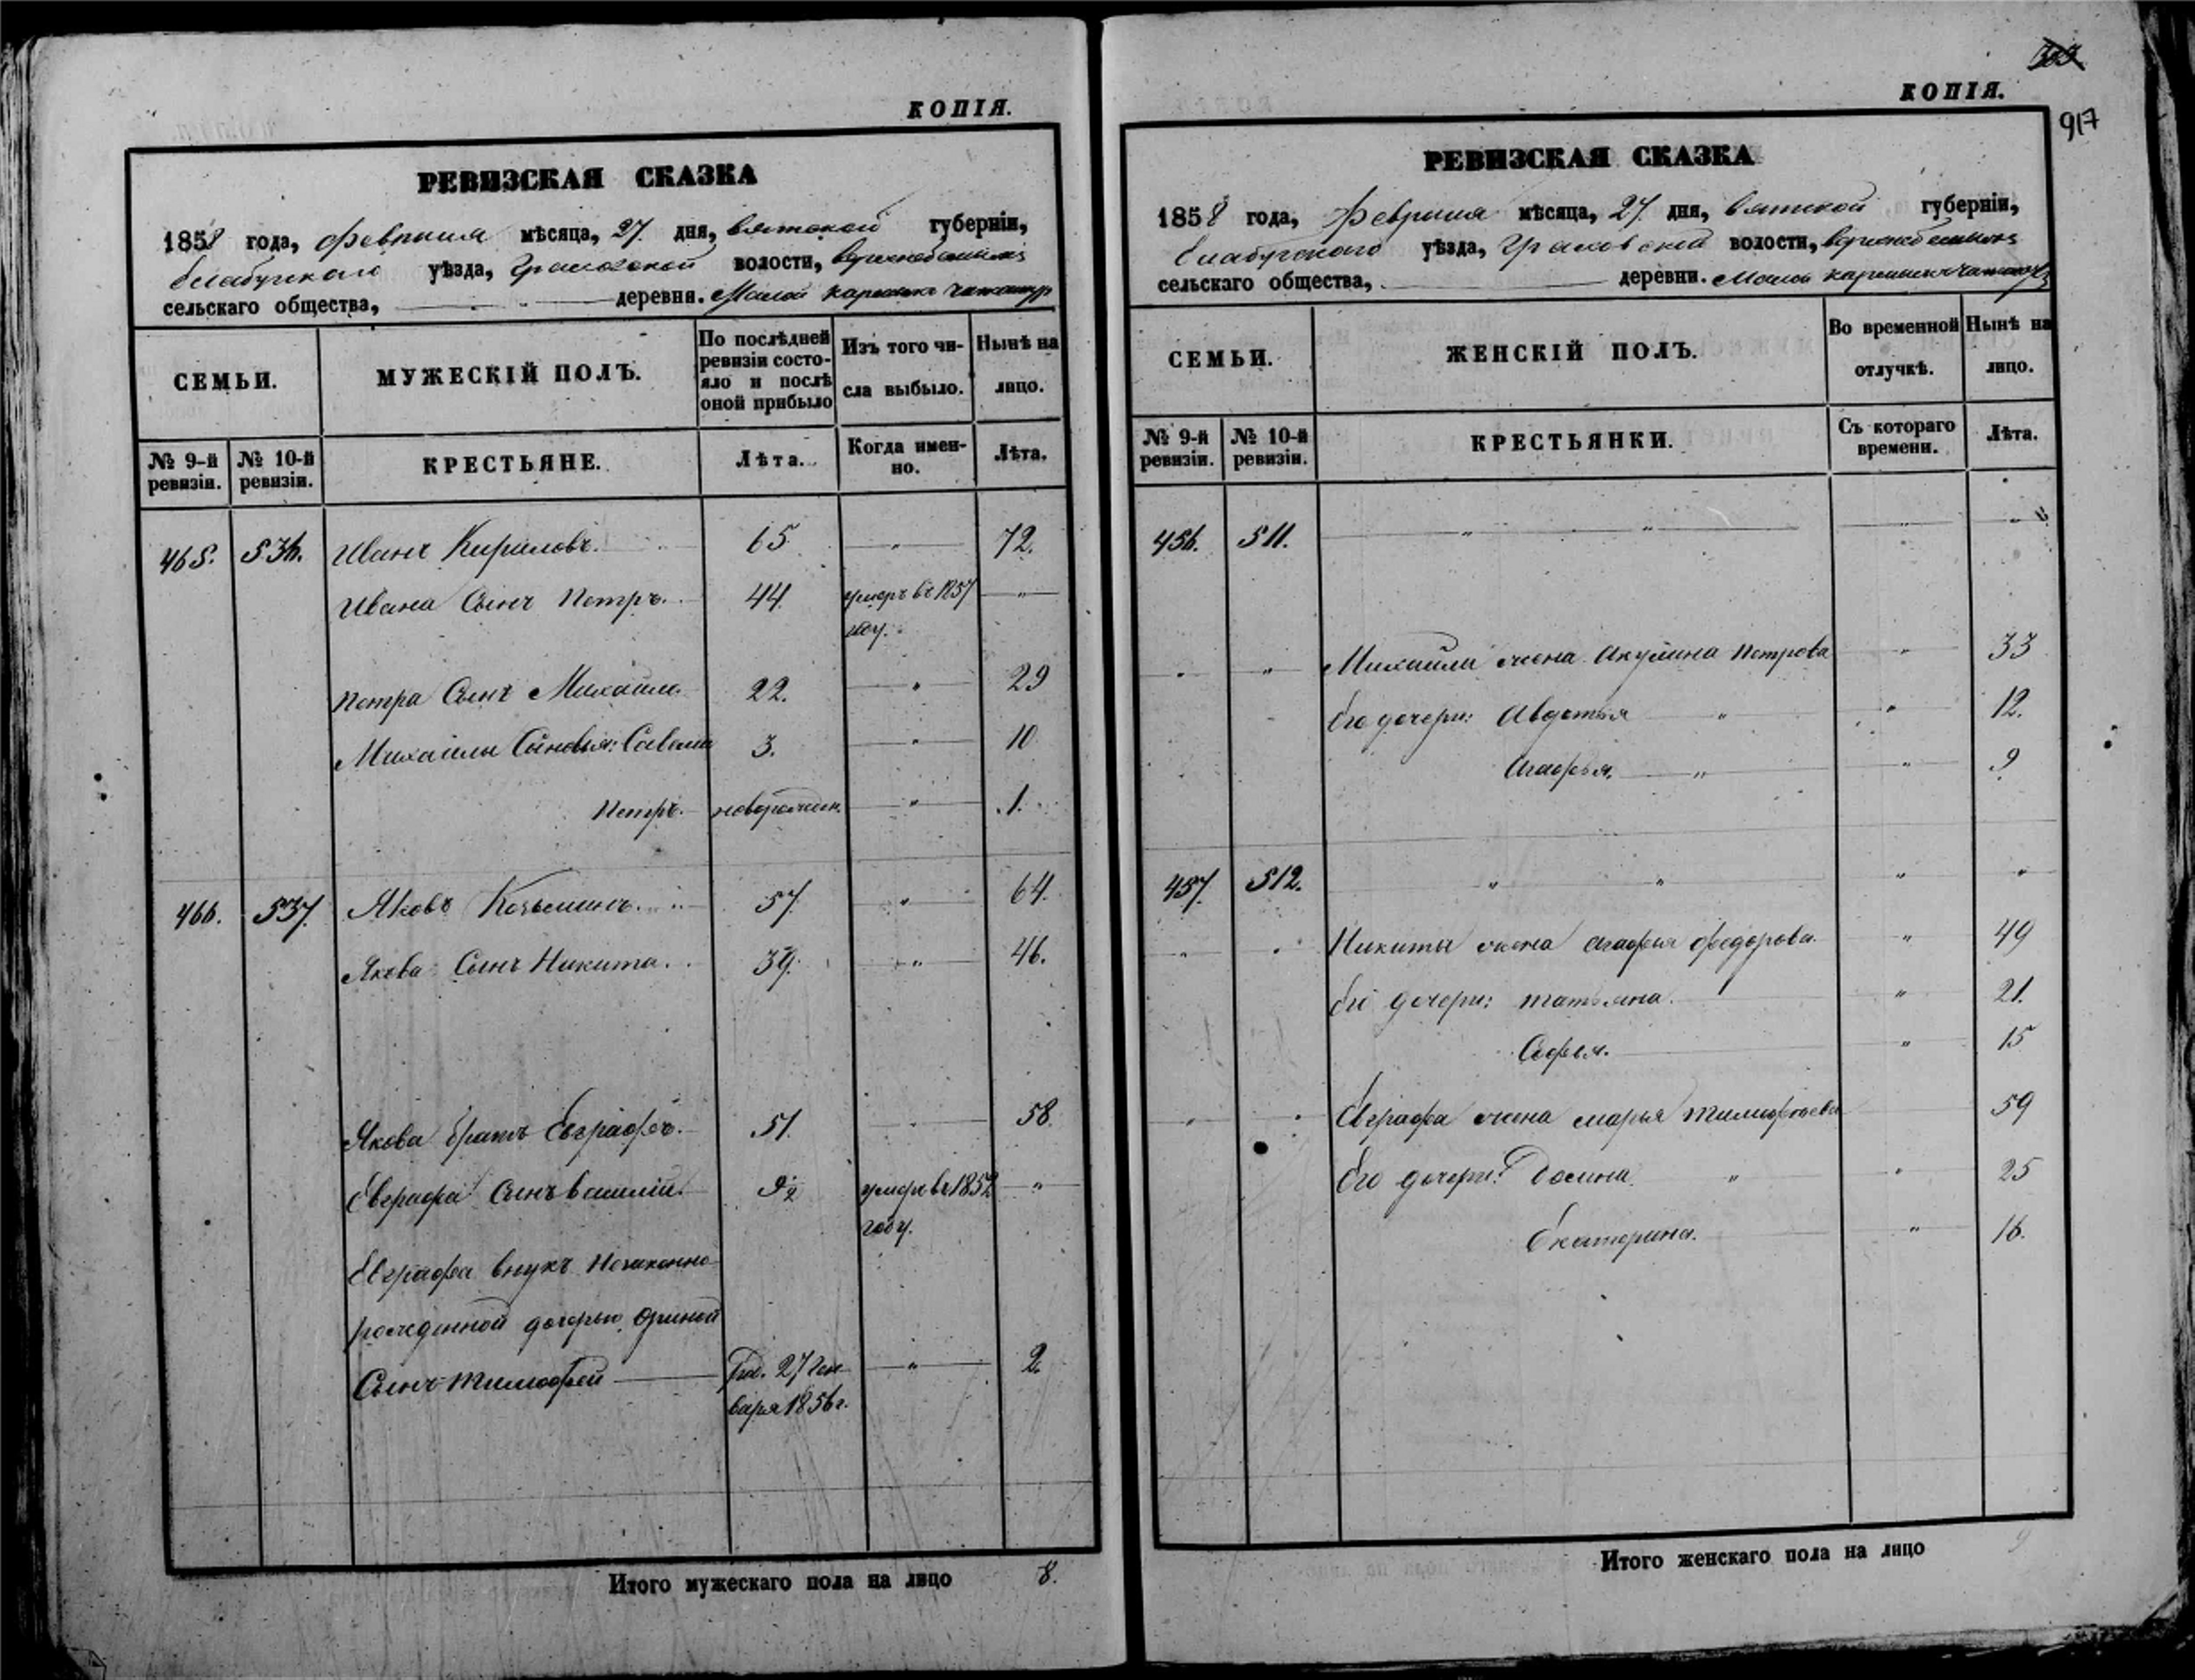 КОПІЯ.
РЕВИЗСКАЯ СКАЗКА
1858 года, февраля мѣсяца, 27 дня, вятской губерніи,
Елабугскаго уѣзда, Граховской волости,
сельскаго общества, — „ — деревня. Малой
СЕМЬИ. МУЖЕСКІЙ ПОЛЪ. По послѣдней ревизіи состояло и послѣ оной прибыло Изъ того числа выбыло. Нынѣ на лицо.
№ 9-й ревизіи. № 10-й ревизіи. КРЕСТЬЯНЕ. Лѣта. Когда именно. Лѣта.
465. 536. Иванъ Кириловъ. 65 „ 72.
Ивана Сынъ Петръ. 44. умеръ въ 1857 „
году.
Петра Сынъ Михайло. 22. „ 29
Михаилы Сыновья: Савелій 3. „ 10
Петръ. новорожден. „ 1.
466. 537. Яковъ Козьминъ. 57. „ 64.
Якова Сынъ Никита. 39. „ 46.
Якова братъ Евграфъ. 51. 58.
Евграфа Сынъ Василій. 9½ умеръ въ 1852 „
году.
Евграфа внукъ Незаконно
рожденной дочерью Ориной
Сынъ Тимофей Род. 27 Ген „ 2.
варя 1856 г.
Итого мужескаго пола на лицо 8.
КОПІЯ.
917
РЕВИЗСКАЯ СКАЗКА
1858 года, Февраля мѣсяца, 27 дня, вятской губерніи,
Елабугскаго уѣзда, Граховской волости,
сельскаго общества, деревни. Малой
СЕМЬИ. ЖЕНСКІЙ ПОЛЪ. Во временной отлучкѣ. Нынѣ на лицо.
№ 9-й ревизіи. № 10-й ревизіи. КРЕСТЬЯНКИ. Съ котораго времени. Лѣта.
456. 511. „ „ „ „
„ „ Михайли жена Акулина Петрова „ 33
Его дочери: Авдотья „ „ 12.
Агафья. „ „ 9
457. 512. „ „ „ „
„ „ Никиты жена Агафья Федорова „ 49
Его дочери: Татьяна. „ 21.
Софья. „ 15
„ „ Евграфа жена Марья Тимофеева 59
Его дочери: Домна „ „ 25
Екатерина. „ 16.
Итого женскаго пола на лицо 9